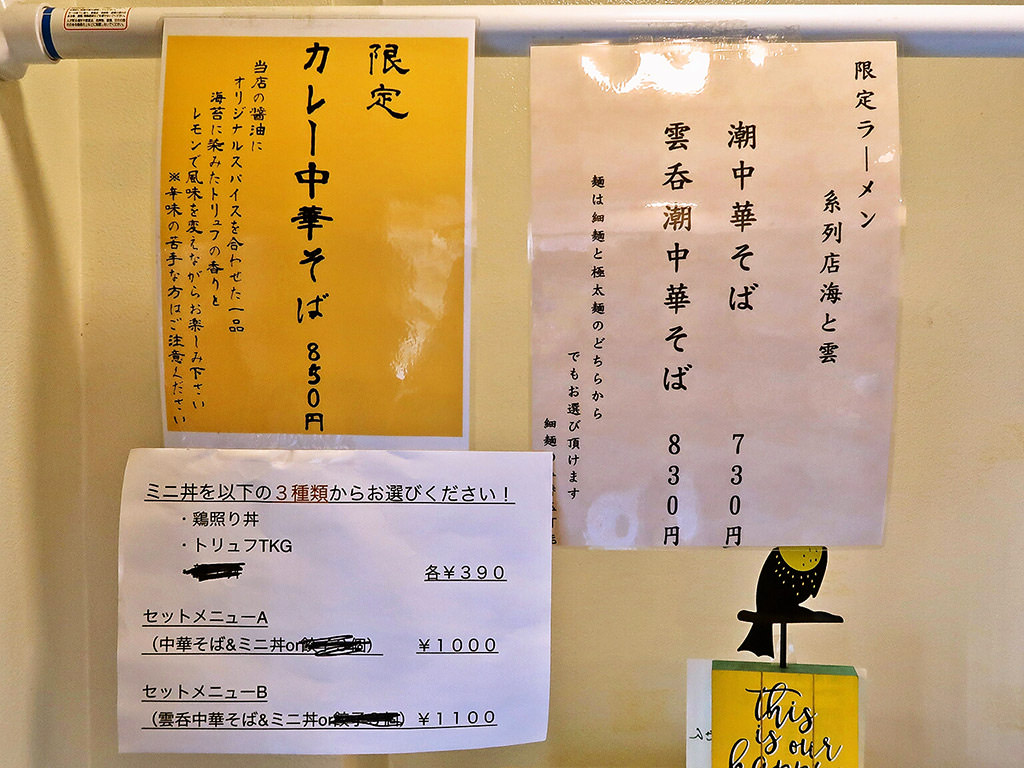 限定
カレー中華そば 850円
当店の醤油に
オリジナルスパイスを合わせた一品
海苔に染みたトリュフの香りと
レモンで風味を変えながらお楽しみ下さい
※辛味の苦手な方はご注意ください
限定ラーメン
系列店海と雲
潮中華そば 730円
雲呑潮中華そば 830円
麺は細麺と極太麺のどちらから
でもお選び頂けます
細麺
ミニ丼を以下の3種類からお選びください!
・鶏照り丼
・トリュフTKG
各¥390
セットメニューA
(中華そば&ミニ丼or) ¥1000
セットメニューB
(雲呑中華そば&ミニ丼or) ¥1100
this
is our